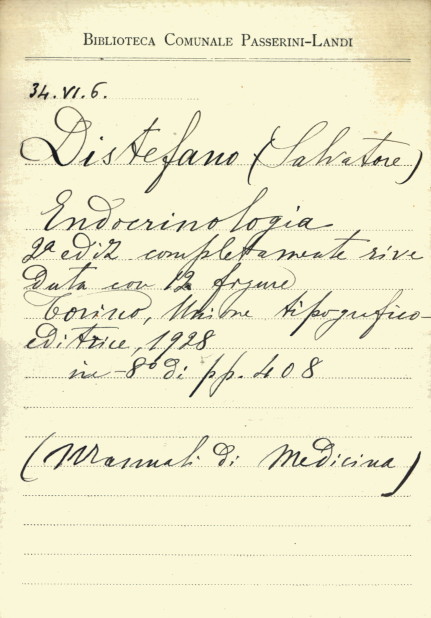 BIBLIOTECA COMUNALE PASSERINI-LANDI
34.VI.6.
Distefano (Salvatore)
Endocrinologia
2ª ediz completamente rive
duta con 12 figure
Torino, Unione tipografico-
editrice, 1928
in-8° di pp. 408
(Manuali di Medicina)